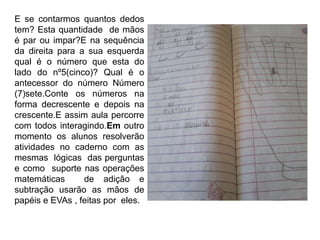 E se contarmos quantos dedos
tem? Esta quantidade de mãos
é par ou impar?E na sequência
da direita para a sua esquerda
qual é o número que esta do
lado do nº5(cinco)? Qual é o
antecessor do número Número
(7)sete.Conte os números na
forma decrescente e depois na
crescente.E assim aula percorre
com todos interagindo.Em outro
momento os alunos resolverão
atividades no caderno com as
mesmas lógicas das perguntas
e como suporte nas operações
matemáticas de adição e
subtração usarão as mãos de
papéis e EVAs , feitas por eles.